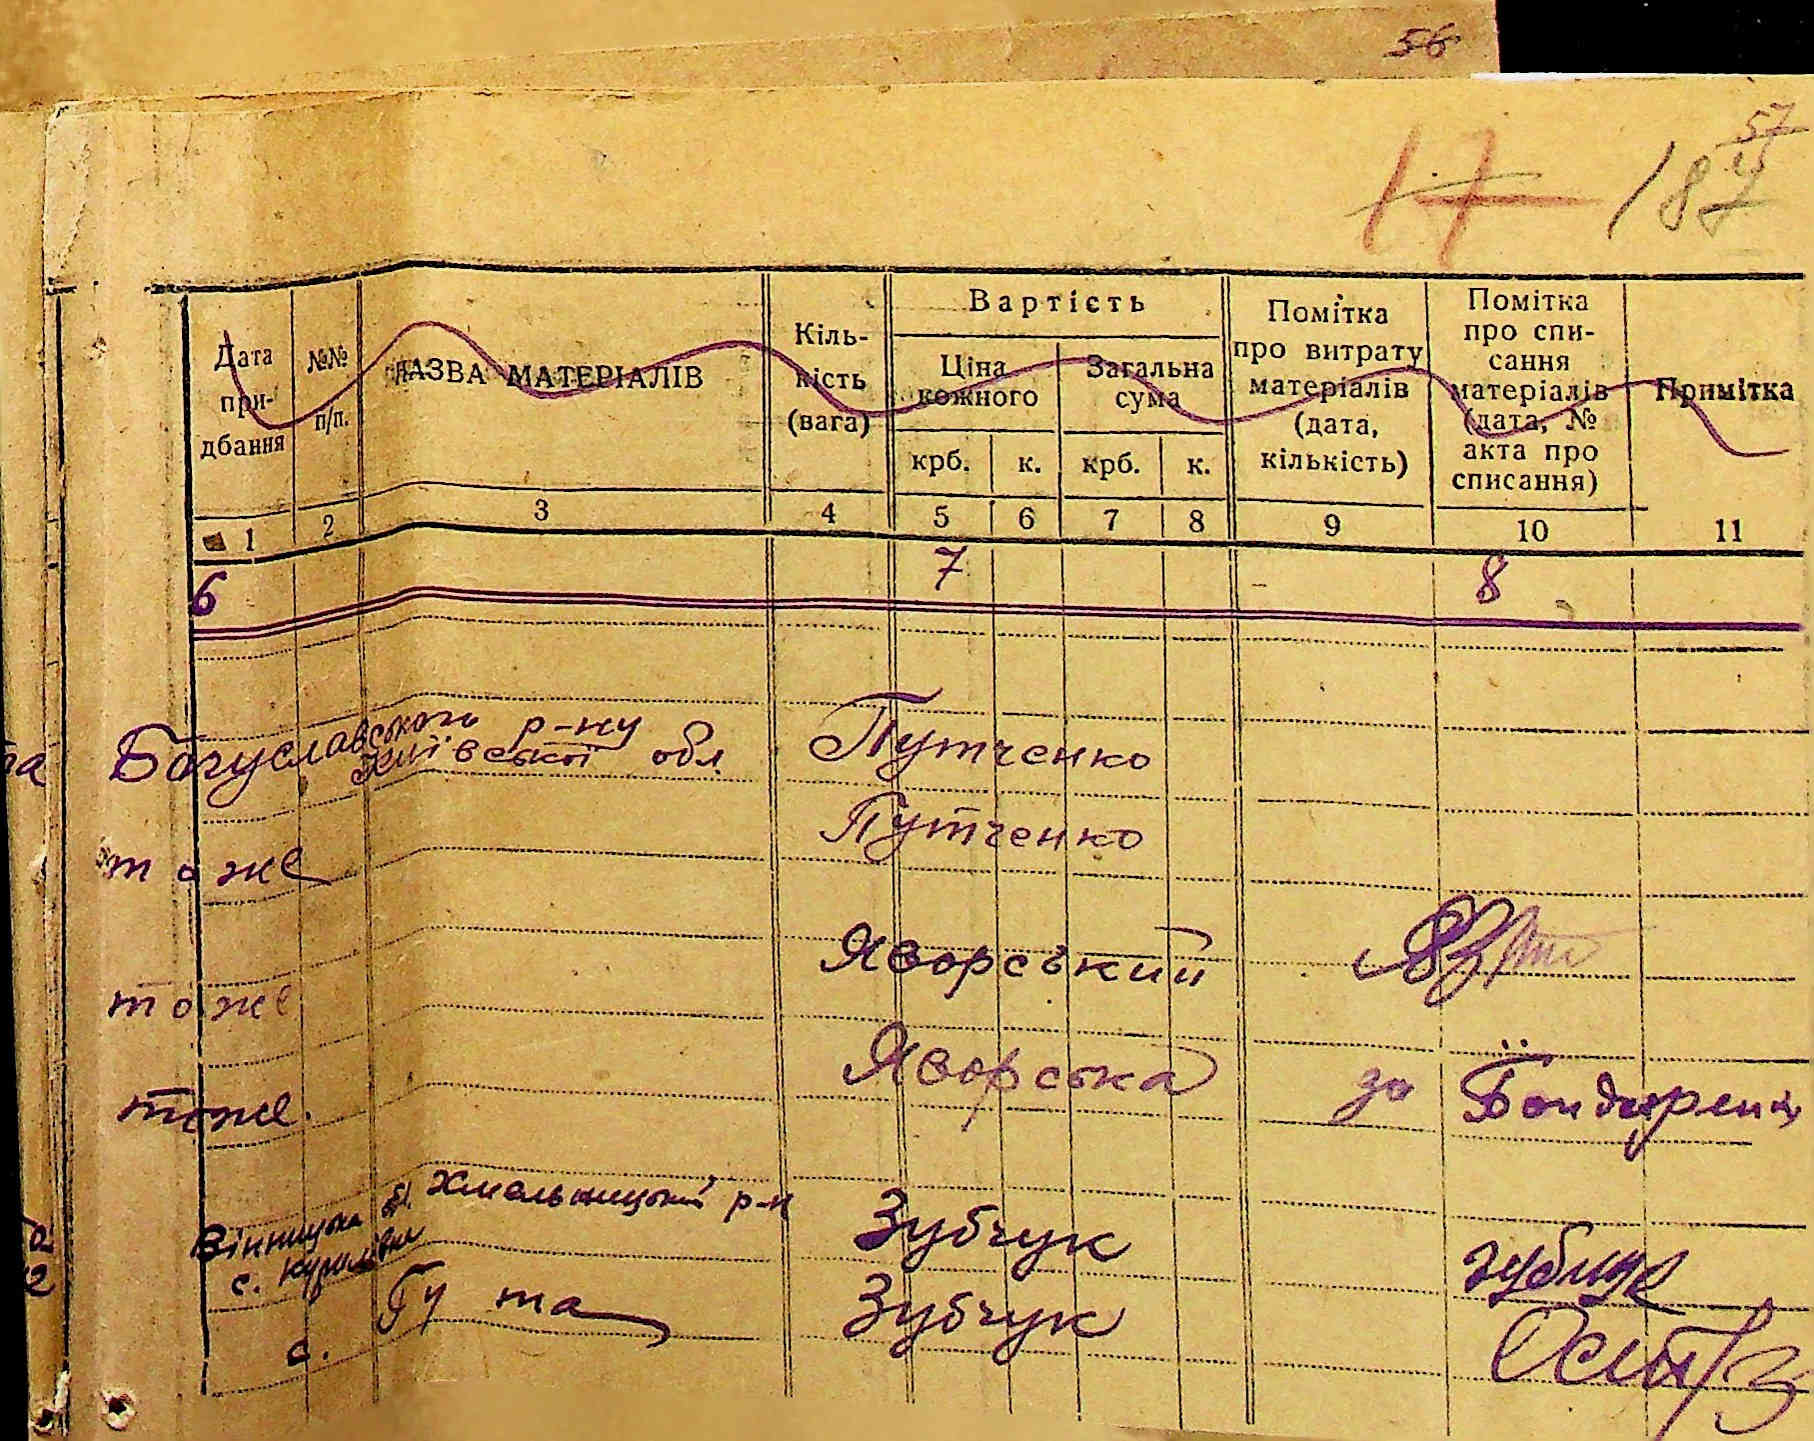 56
57
17 187
Дата при- дбання
№№ п/п.
НАЗВА МАТЕРІАЛІВ
Кіль- кість (вага)
Вартість
Ціна кожного
Загальна сума
крб. к. крб. к.
Помітка про витрату матеріалів (дата, кількість)
Помітка про спи- сання матеріалів (дата, № акта про списання)
Примітка
1 2 3 4 5 6 7 8 9 10 11
6 7 8
Богуславського р-ну Путченко
Київської обл
Путченко
тоже
Яворський
тоже
Яворська
тоже. за Бондарен
Вінницька обл. Хмельницький р-н Зубчук
с. Курилівка Зубчук
с. Гута Зубчук